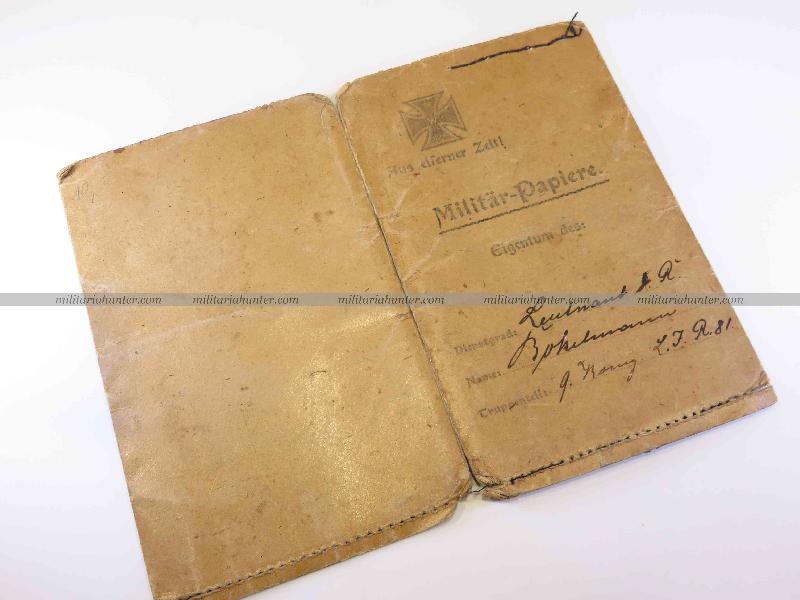 Aus eiserner Zeit!
Militär-Papiere.
Eigentum des:
Dienstgrad: Leutnant d. R.
Name: Bokelmann
Truppenteil: 9. Komp. L. I. R. 81.
militariahunter.com militariahunter.com militariahunter.com militariahunter.com militariahunter.com